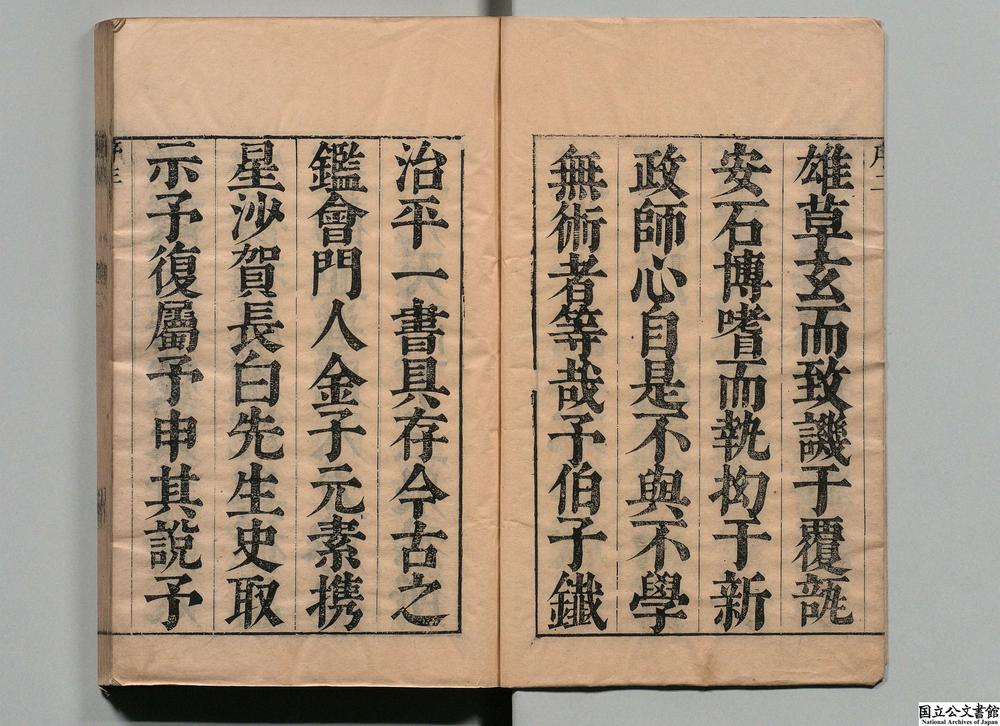 雄草玄而致譏于覆瓿
安石博嗜而執拗于新
政師心自是不與不學
無術者等哉予伯子鑯
治平一書具存今古之
鑑會門人金子元素携
星沙賀長白先生史取
示予復屬予申其說予
序二
序三
国立公文書館
National Archives of Japan